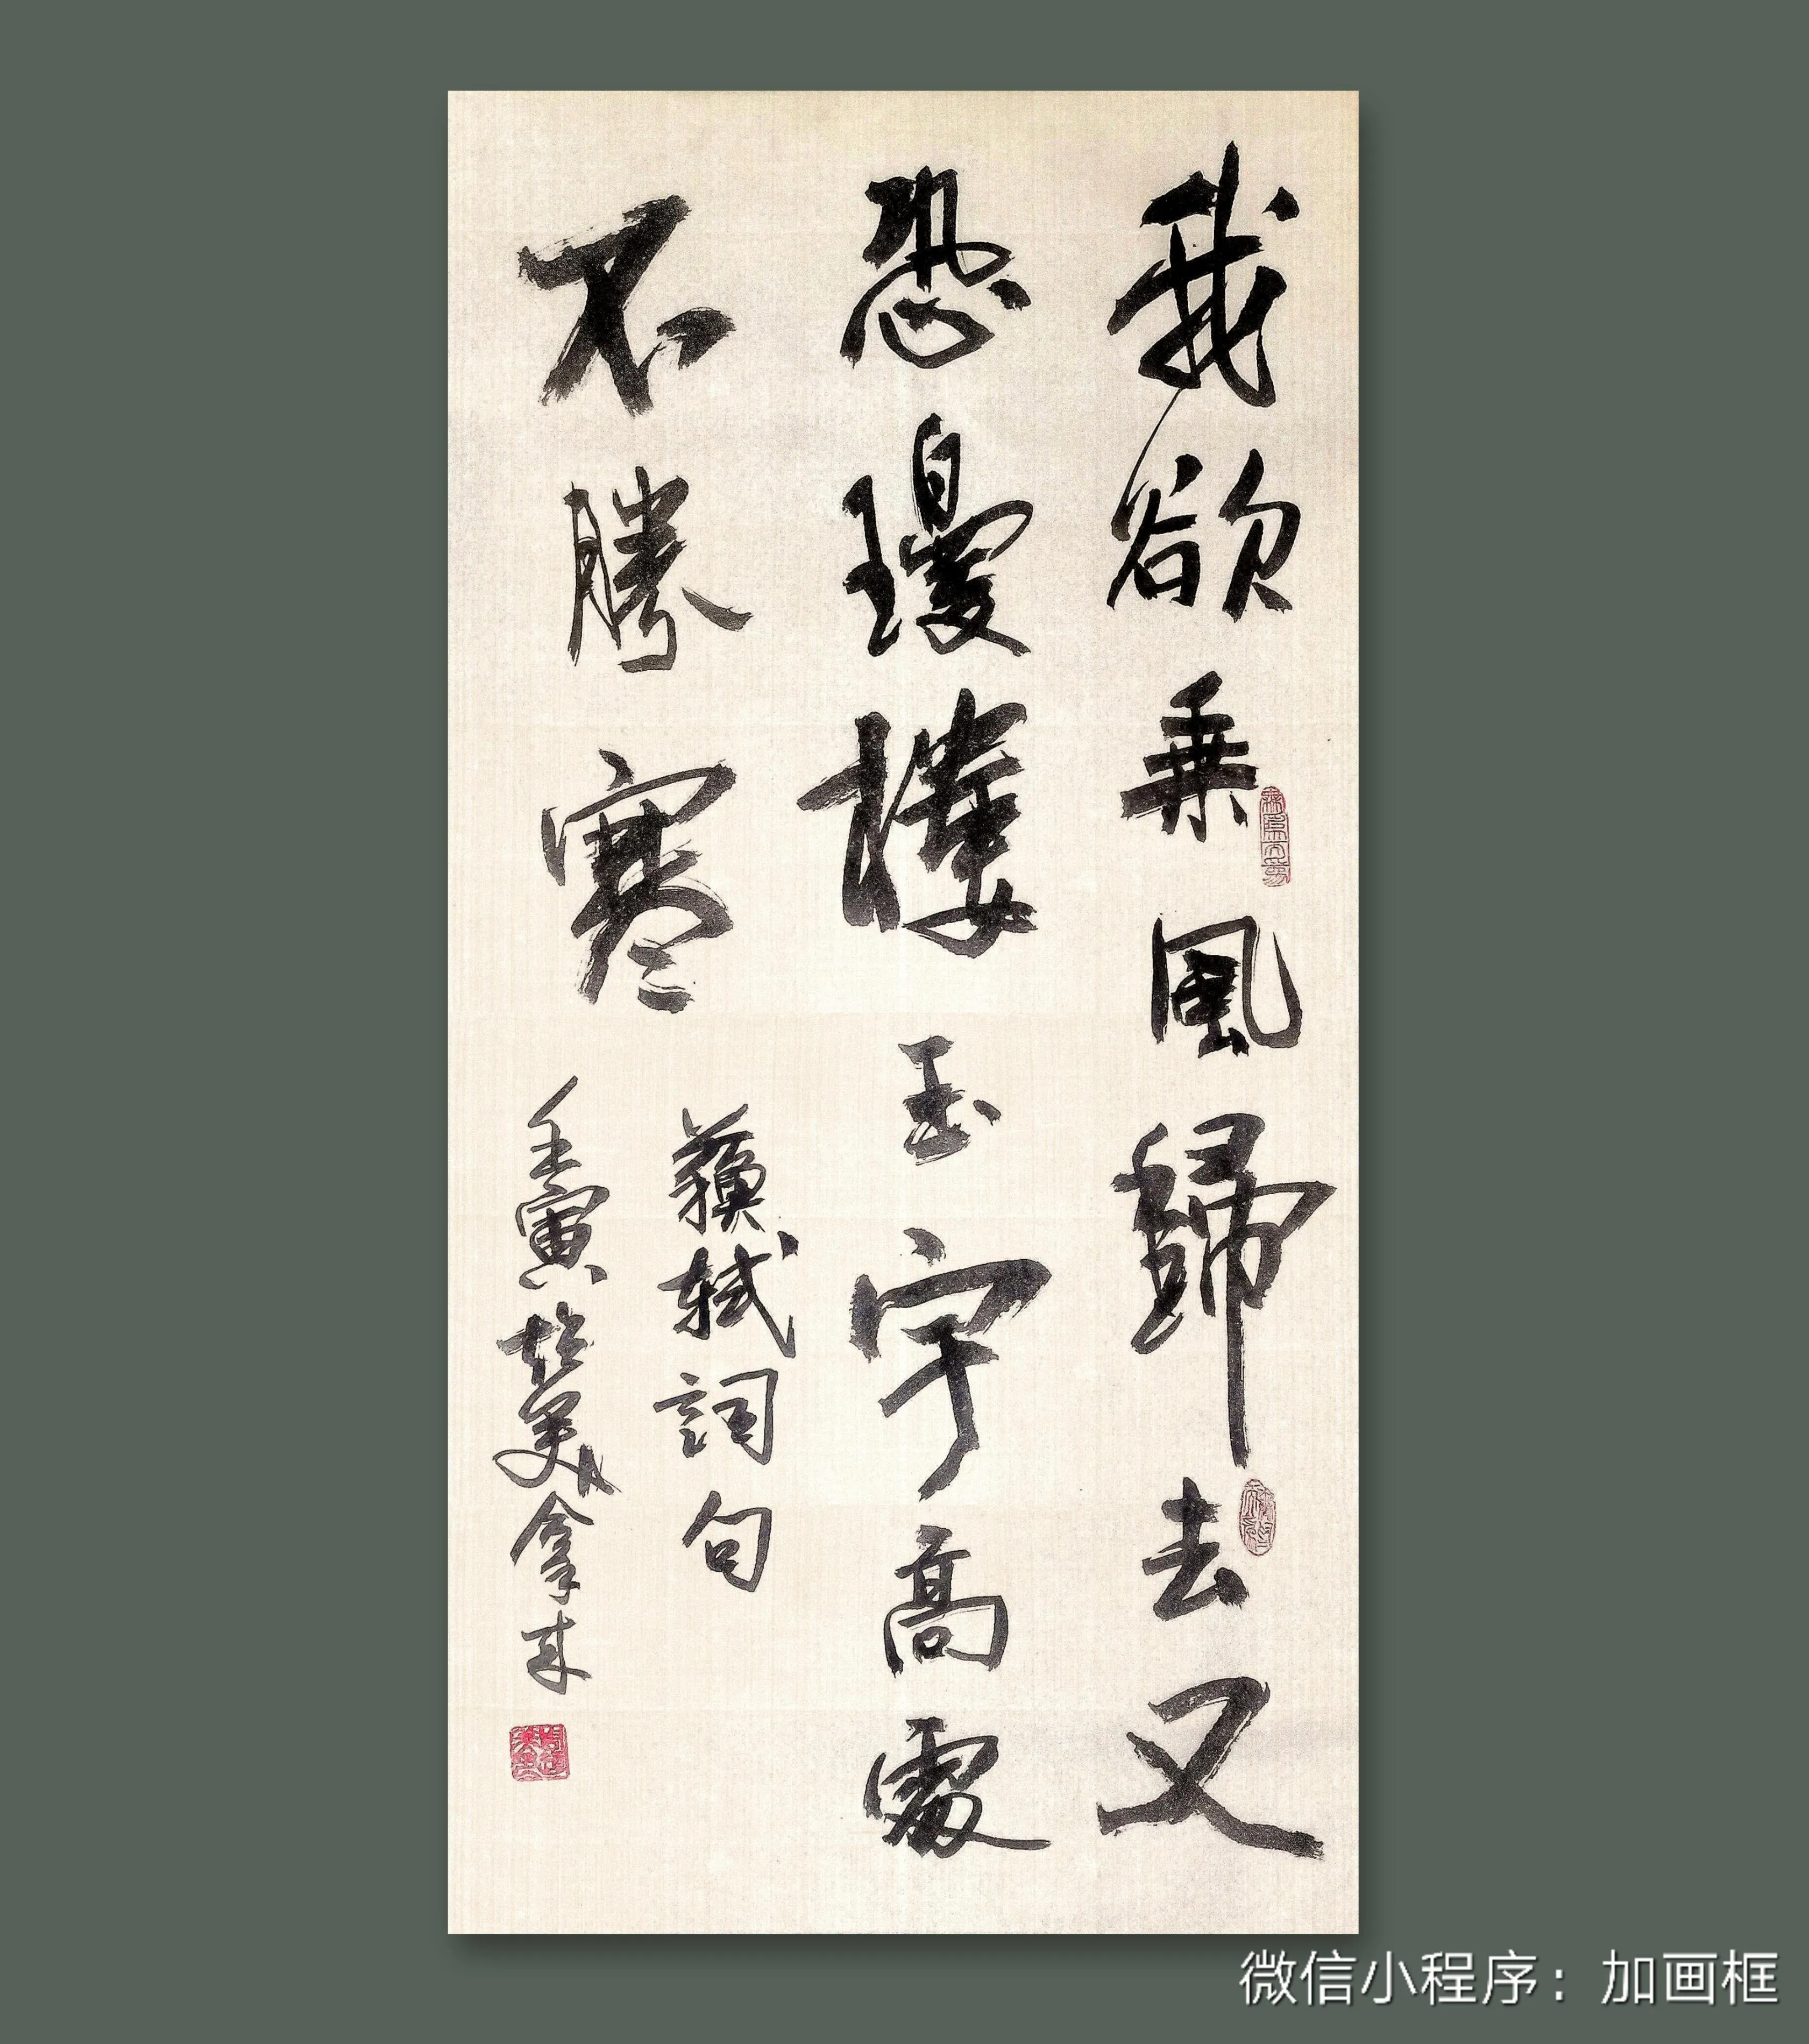 我欲乘風歸去又
恐瓊樓玉宇高處
不勝寒
蘇軾詞句
壬寅 美 拿来
微信小程序：加画框